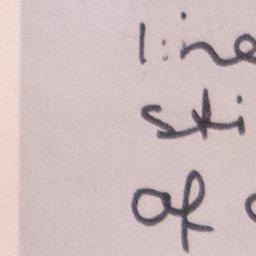 line
sti
of